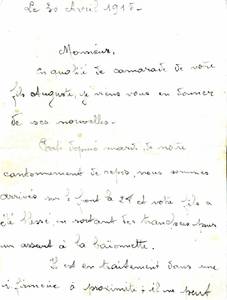 Le 30 Avril 1915-
Monsieur,
En qualité de camarade de votre
fils Auguste, je viens vous en donner
de ses nouvelles.
Parti depuis mardi de notre
cantonnement de repos, nous sommes
arrivés sur le front le 28 et votre fils a
été blessé en sortant des tranchées pour
un assaut à la baïonnette.
Il est en traitement dans une
infirmerie à proximité; il ne peut